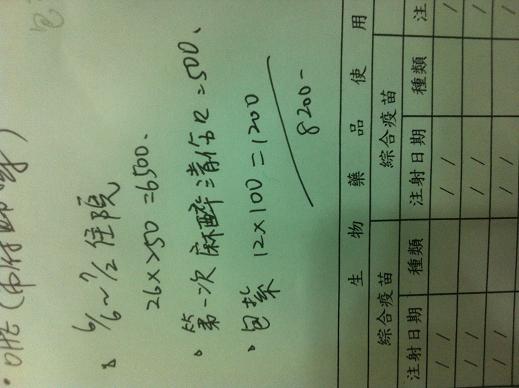 6/6~7/2 住院
26×250=6500、
第一次麻醉清傷口=500、
包紮 12×100=1200
8200-
生物藥品使用
綜合疫苗 綜合疫苗
注射日期 種類 注射日期 種類 注
/ / / / /
/ / / / /
/ / / / /